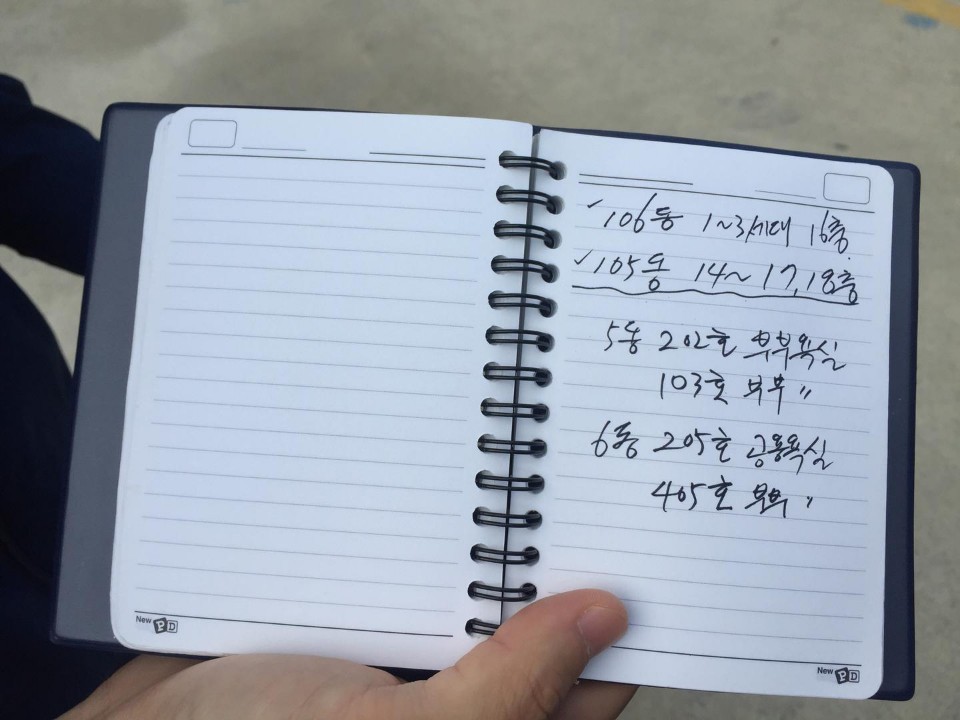 ✓106동 1~3세대 16층.
✓105동 14~17,18층
5동 202호 부부욕실
103호 부부 〃
6동 205호 공용욕실
405호 부부 〃
New PD
New PD